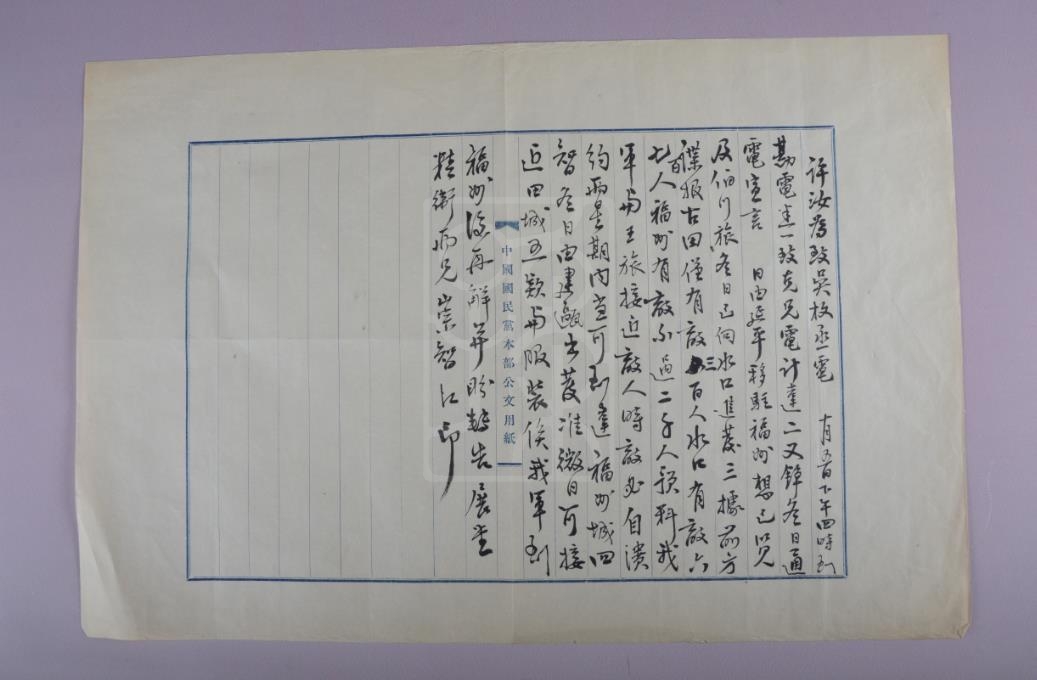 許汝為致吳枚丞電 十月五日下午四時到
勘電悉一致克兄電計達二又錚冬日通
電宣言 日由延平移駐福州想已以
及伯川旅冬日已向水口進發三據前方
諜報古田僅有敵三百人水口有敵六
七百人福州有敵不過二千人預料我
軍與王旅接近敵人時敵必自潰
約兩星期內當可到達福州城四
智冬日由建甌出發准微日可接
近田城五款與服裝俟我軍到
福州後再解并盼轉告展堂
精衛兩兄崇智江印
中國國民黨本部公文用紙